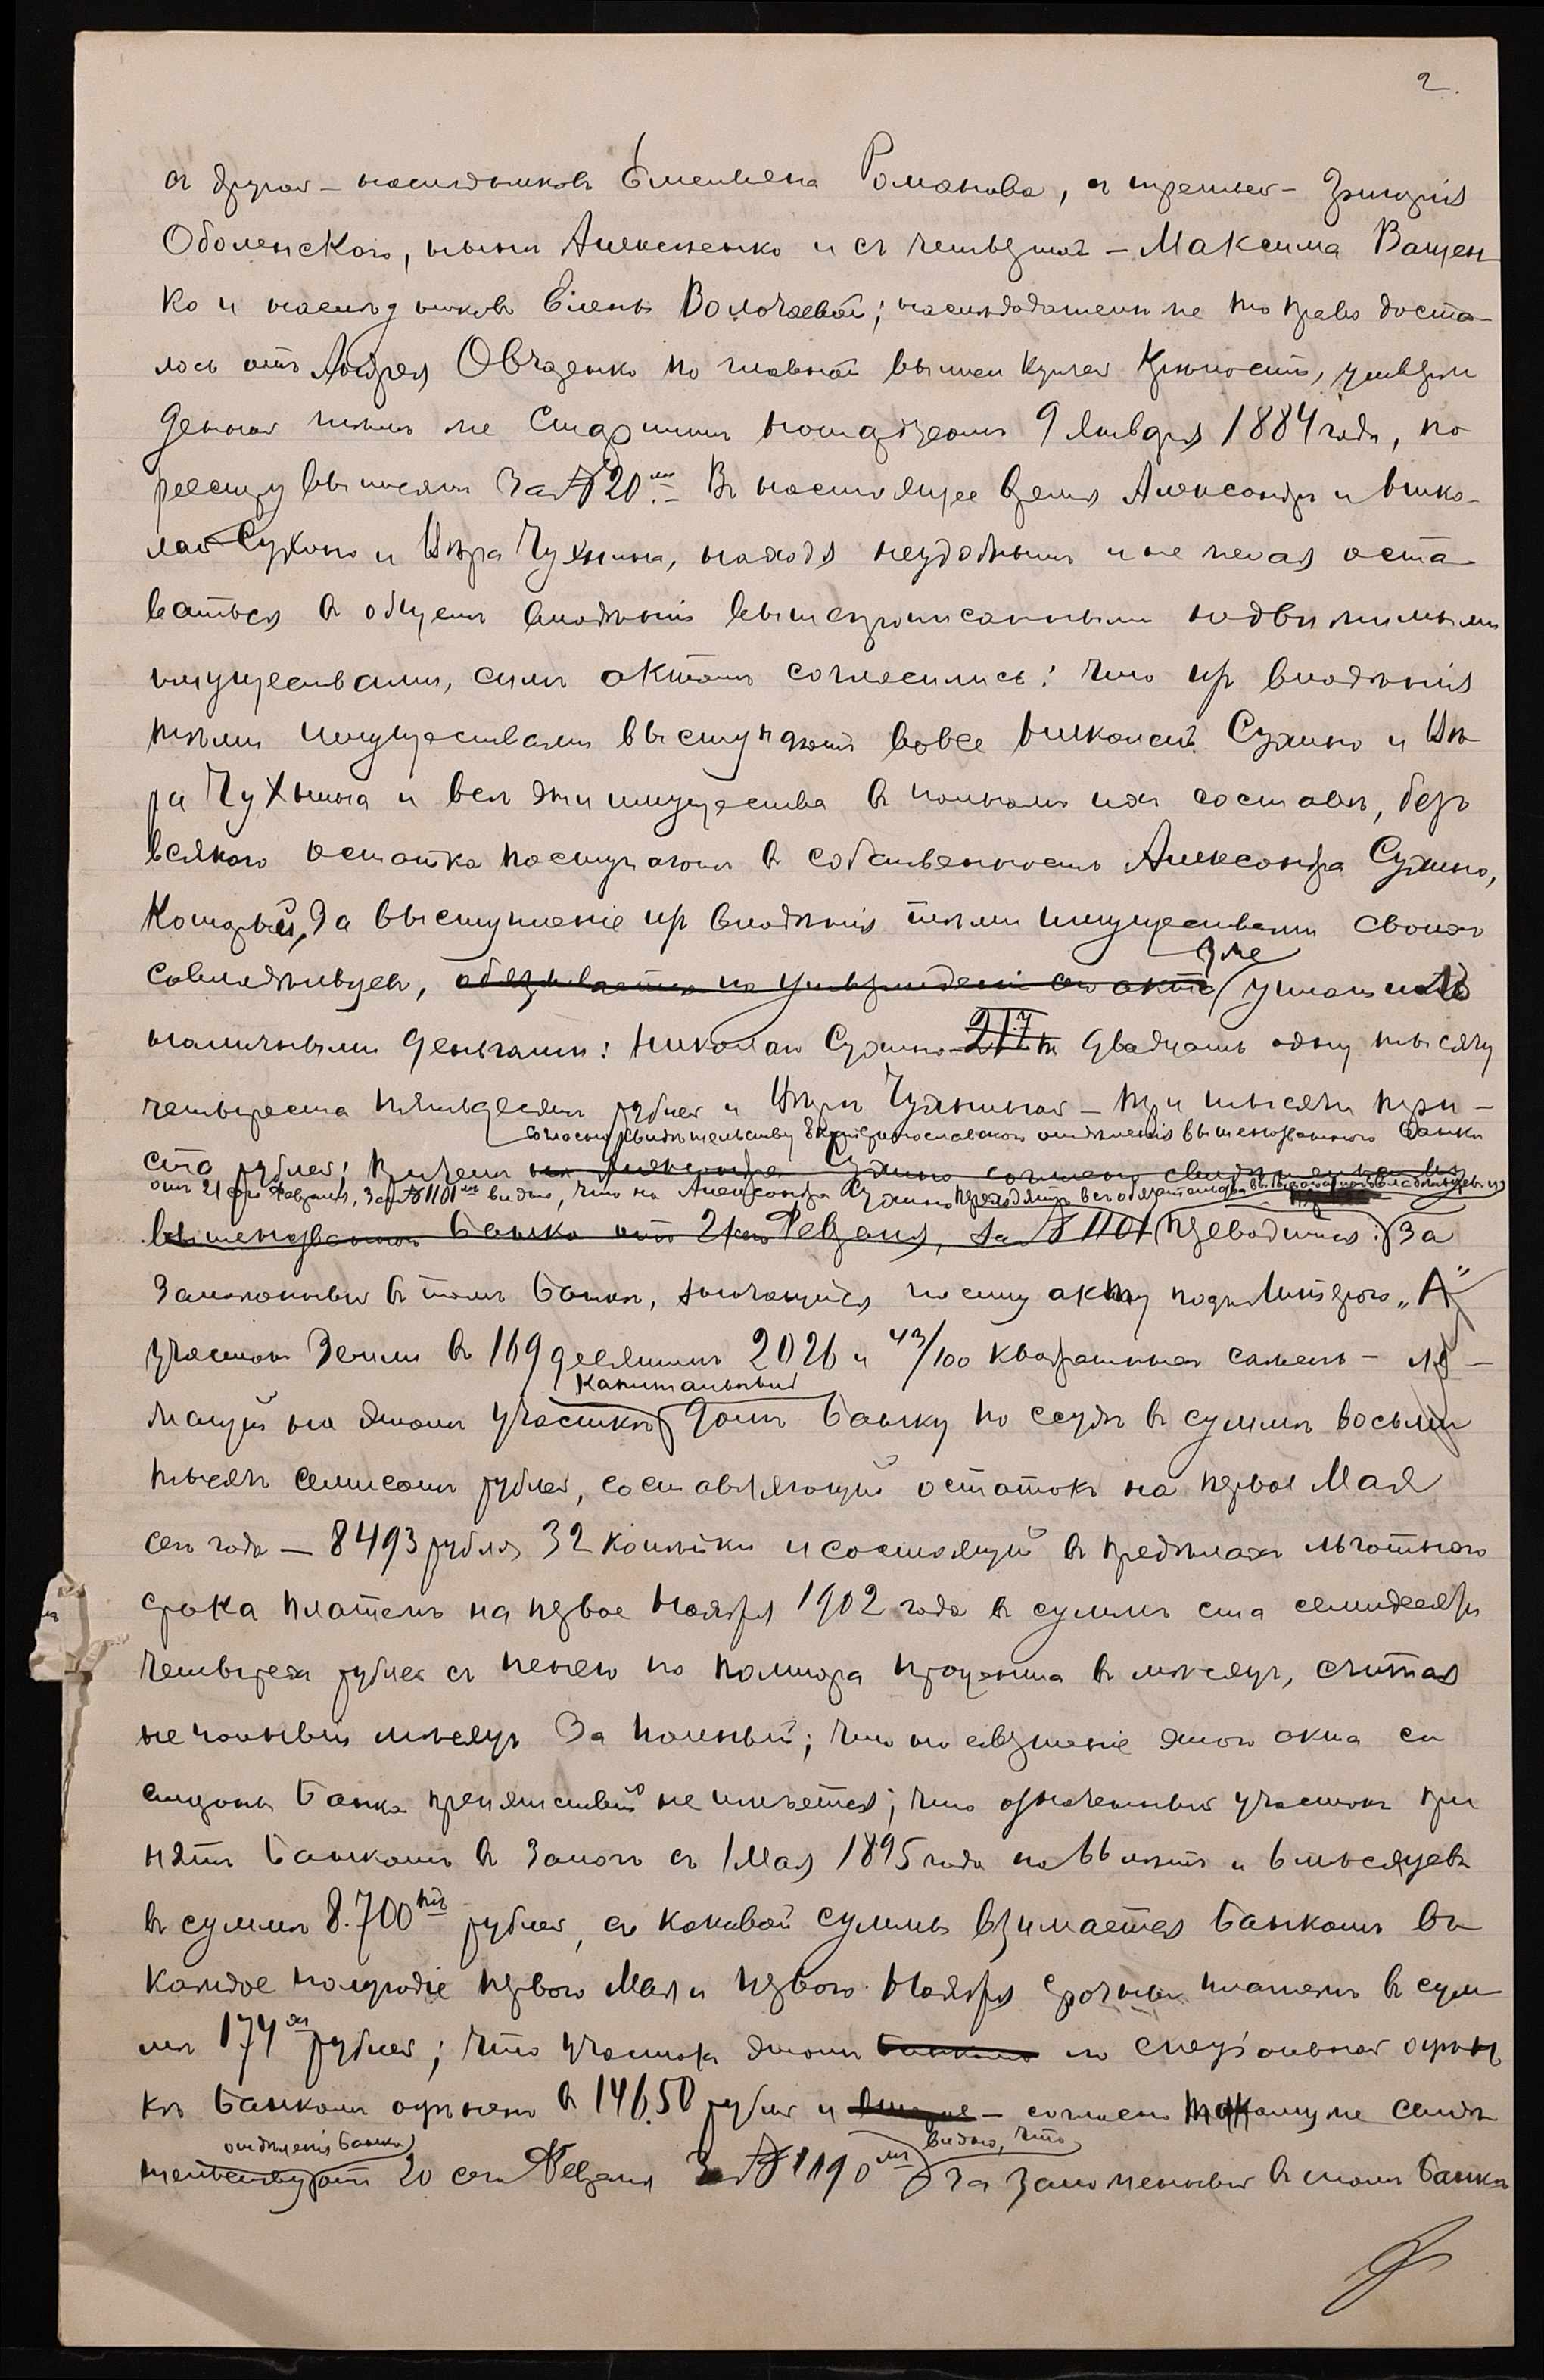 2.
съ другой – наслѣдниковъ Емельяна Романова, съ третьей – Григорія
Оболенскаго, нынѣ Алексѣенко и съ четвертой – Максима Ващен-
ко и наслѣдниковъ Елены Волочаевой; наслѣдодателю же то право доста-
лось отъ Андрея Овчаренко по главной выписи купчей крѣпости, утверж-
денной тѣмъ же Старшимъ Нотаріусомъ 9 Января 1884 года, по
реестру выписями за № 20мъ. Въ настоящее время Александръ и Нико-
лай Сухино и Вѣра Чухнина, находя неудобнымъ и не желая оста-
ваться въ общемъ владѣніи вышепрописанными недвижимыми
имуществами, симъ актомъ согласились: что изъ владѣнія
тѣми имуществами выступаютъ вовсе Николай Сухино и Вѣ-
ра Чухнина и всѣ эти имущества въ полномъ ихъ составѣ, безъ
всякаго остатка поступаютъ въ собственность Александра Сухино,
который, за выступленіе изъ владѣнія тѣми имуществами своихъ
уже
совладѣльцевъ, обязывается по утвержденіи сего акта уплатилъ
наличными деньгами: Николаю Сухино 21 т двадцать одну тысячу
четыреста пятьдесятъ рублей и Вѣрѣ Чухниной – три тысячи три-
согласно свидѣтельству Екатеринославскаго отдѣленія вышеназваннаго Банка
ста рублей; причемъ на Александра Сухино согласно свидѣтельства
отъ 21 сего Февраля, за № 1101мъ видно, что на Александра Сухино переходятъ всѣ обязательства
вышеназваннаго Банка отъ 21 сего Февраля, за № 1101 переводится: За
заложенный въ томъ Банкѣ, значащійся по сему акту подъ литерою „А"
участокъ земли въ 169 десятинъ 2026 и 43/100 квадратныхъ сажень – ле-
капитальный
жащій на этомъ участкѣ долгъ Банку по ссудѣ въ суммѣ восьми
тысячъ семисотъ рублей, составляющій остатокъ на первое Мая
сего года – 8493 рубля 32 копѣйки и состоящій въ предѣлахъ льготнаго
срока платежъ на первое Ноября 1902 года въ суммѣ ста семидесяти
четырехъ рублей съ пенею по полтора процента въ мѣсяцъ, считая
неполный мѣсяцъ за полный; что на совершеніе этого акта со
стороны Банка препятствій не имѣется; что означенный участокъ при-
нятъ Банкомъ въ залогъ съ 1 Мая 1895 года на 66 лѣтъ и 6 мѣсяцевъ
въ суммѣ 8.700ть рублей, съ каковой суммы взимается Банкомъ въ
каждое полугодіе перваго Мая и перваго Ноября срочный платежъ въ сум-
мѣ 174 рублей; что участокъ этотъ Банкомъ по спеціальной оцѣн-
кѣ Банкомъ оцѣненъ въ 14650 рублей и – согласно такому же свидѣ-
отдѣленія Банка видно, что
тельству отъ 20 сего Февраля за № 1190мъ За заложенный въ томъ Банкѣ